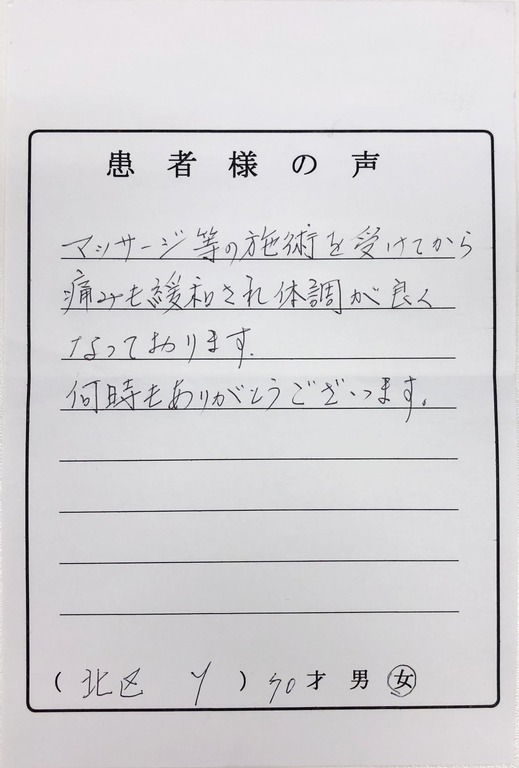 患者様の声
マッサージ等の施術を受けてから
痛みも緩和され体調が良く
なっております。
何時もありがとうございます。
(北区 Y) 70才 男 女